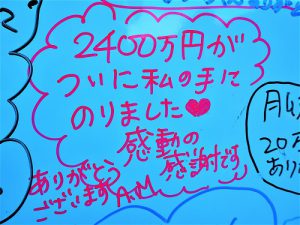 2400万円が
ついに私の手に
のりました♥
感動の
感謝です
ありがとう
ございます A.M
月4
20万
あり